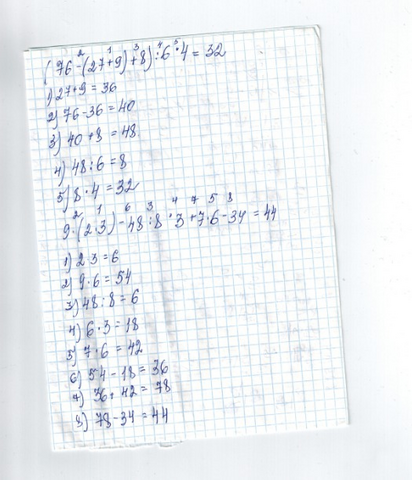 (76-(27+9)+8):6·4=32
1) 27+9=36
2) 76-36=40
3) 40+8=48
4) 48:6=8
5) 8·4=32
9·(2·3)-48:8·3+7·6-34=44
1) 2·3=6
2) 9·6=54
3) 48:8=6
4) 6·3=18
5) 7·6=42
6) 54-18=36
7) 36+42=78
8) 78-34=44